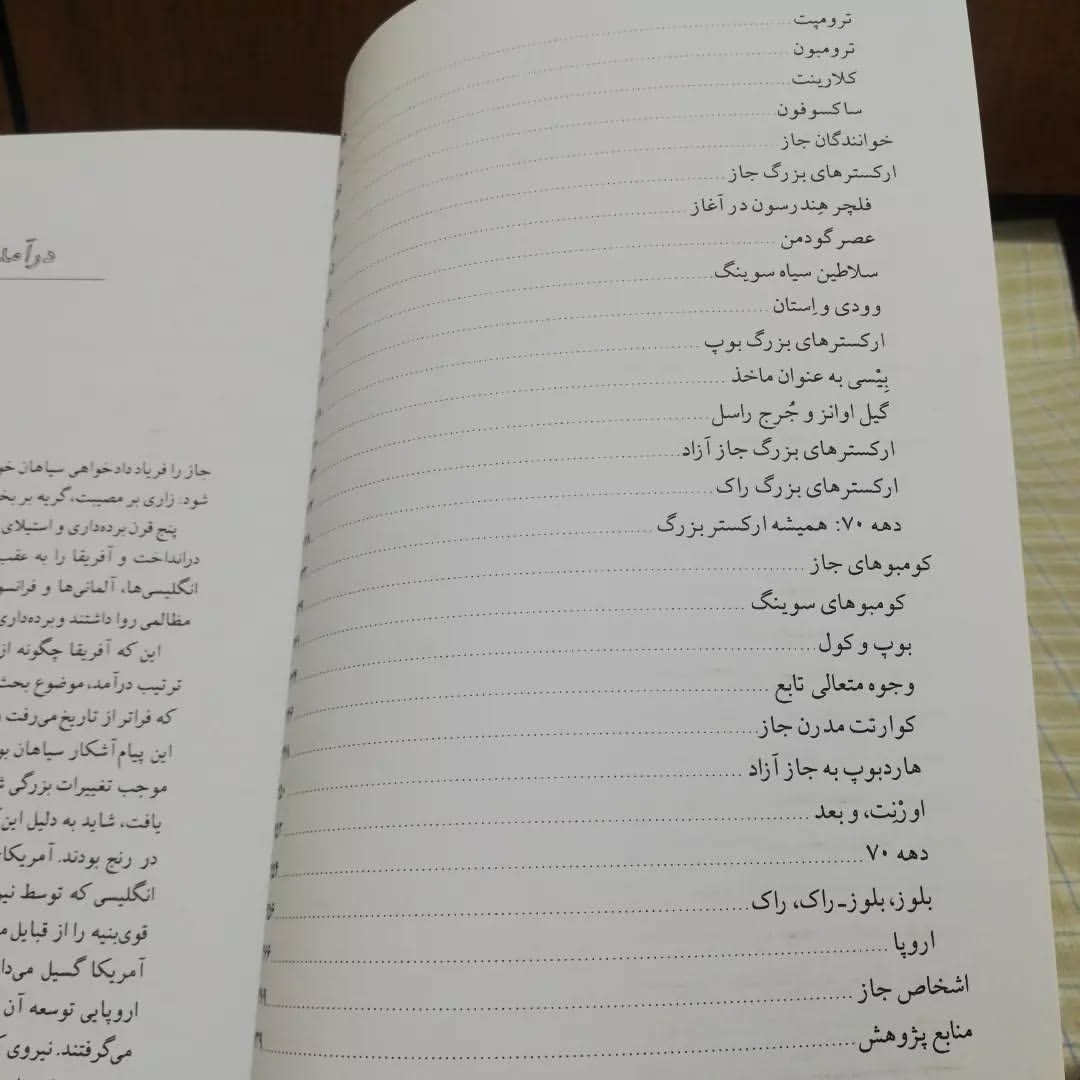 ترومپت
ترومبون
کلارینت
ساکسوفون
خوانندگان جاز
ارکسترهای بزرگ جاز
فلچر هِندرسون در آغاز
عصر گودمن
سلاطین سیاه سوینگ
وودی و اِستان
ارکسترهای بزرگ بوپ
بِیْسی به عنوان ماخذ
گیل اوانز و جُرج راسل
ارکسترهای بزرگ جاز آزاد
ارکسترهای بزرگ راک
دهه ۷۰: همیشه ارکستر بزرگ
کومبوهای جاز
کومبوهای سوینگ
بوپ و کول
وجوه متعالی تابع
کوارتت مدرن جاز
هاردبوپ به جاز آزاد
اورْنِت، و بعد
دهه ۷۰
بلوز، بلوز-راک، راک
اروپا
اشخاص جاز
منابع پژوهش
درآمد
جاز را فریاد دادخواهی سیاهان
شود. زاری بر مصیبت، گریه بر
پنج قرن برده‌داری و استیلای
درانداخت و آفریقا را به عقب
انگلیسی‌ها، آلمانی‌ها و
مظالمی روا داشتند و برده‌داری
این که آفریقا چگونه از
ترتیب درآمد، موضوع بحث
که فراتر از تاریخ می‌رفت
این پیام آشکار سیاهان
موجب تغییرات بزرگی
یافت، شاید به دلیل این
در رنج بودند. آمریکا
انگلیسی که توسط
قوی‌بنیه را از قبایل
آمریکا گسیل
اروپایی توسعه آن
می‌گرفتند. نیروی